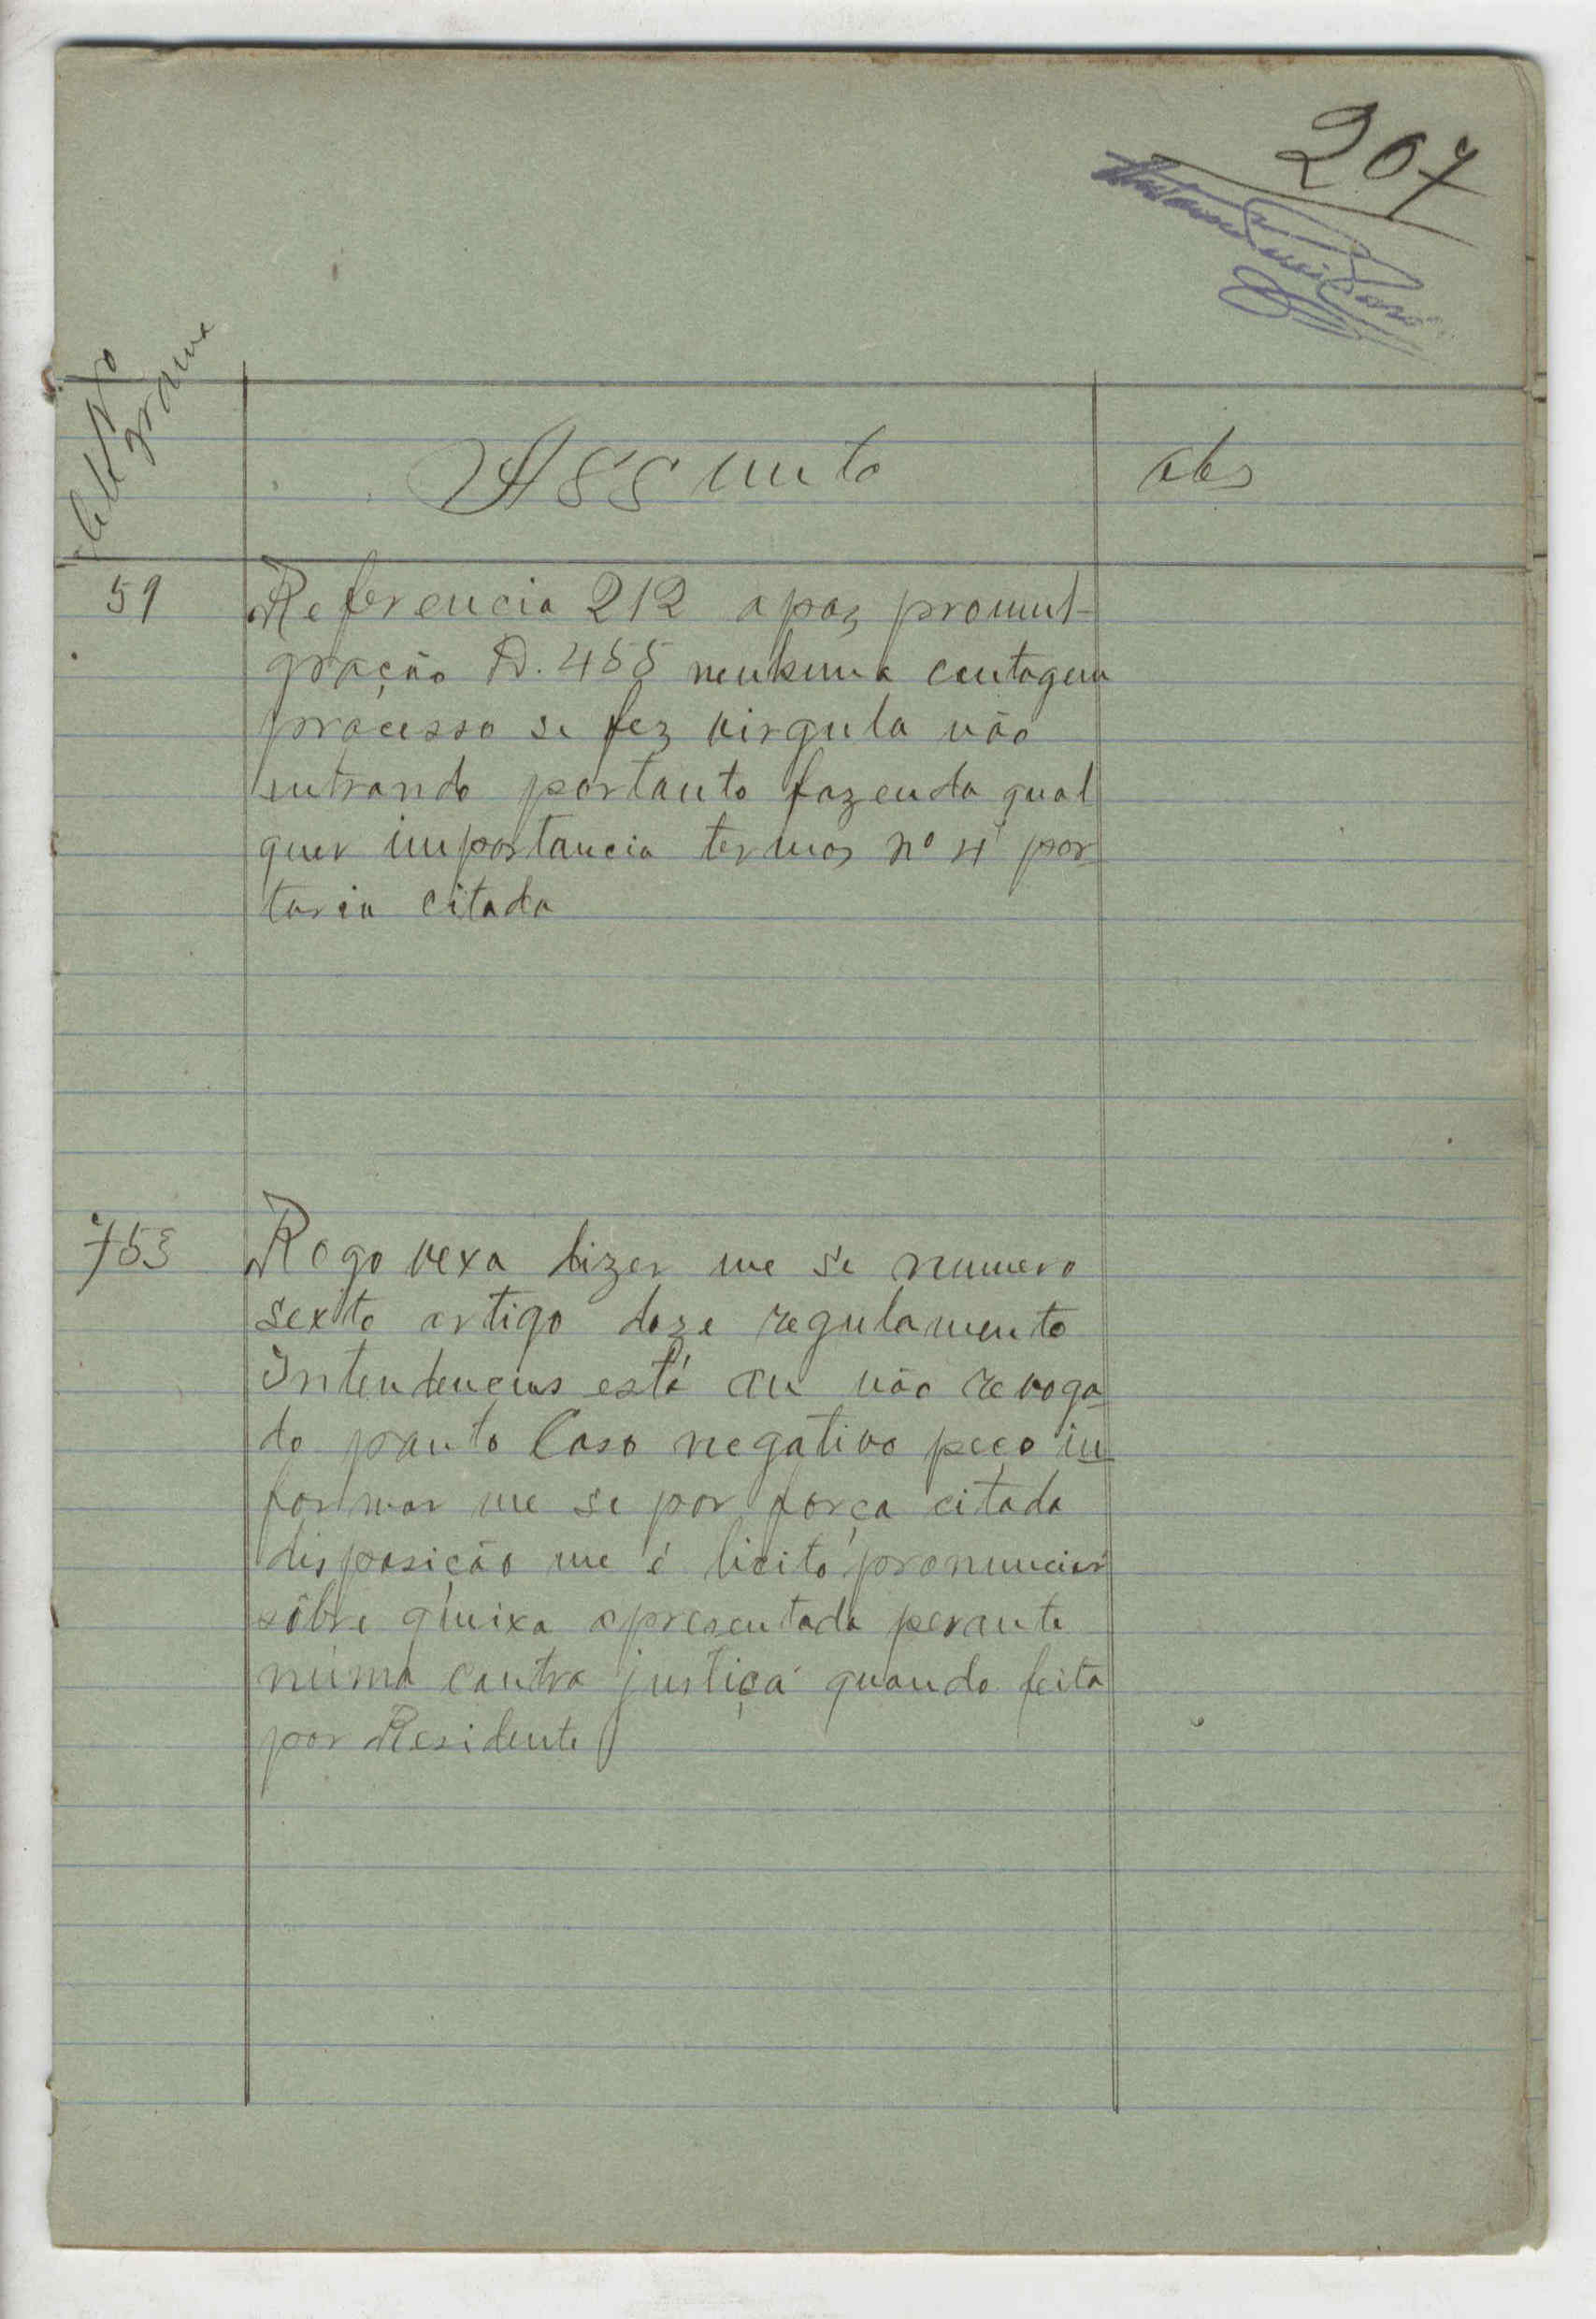 207
Assunto
obs
51
Referencia 212 apoz promul-
gração D. 455 nenhuma contagem
processo se fez virgula não
entrando portanto fazenda qual
quer importancia termos nº 4 por
taria citada
753
Rogo vexa dizer me se numero
sexto artigo doze regulamento
Intendencias está ou não revoga
do ponto Caso negativo peço in
formar me se por força citada
disposição me é licito pronunciar
sôbre queixa apresentada perante
mim contra justiça quando feita
por Residente